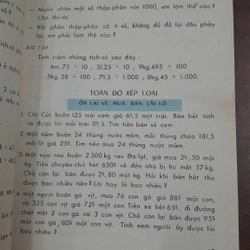 - Muốn nhân một số thập phân với 1000, em làm thế nào ?
Cho thí-dụ
- Khi phần thập-phân có ít số, không đủ để lùi dấu phẩy lại, em phải làm thế nào ?
BÀI TẬP
Tính trầm những tích-số sau đây :
6m,75 × 10 ; 3l25 × 10 ; 9kg,495 × 100
5kg,28 × 100 ; 79l,5 × 1.000 ; 8kg,45 × 1.000.
TOÁN ĐỐ XẾP LOẠI
ÔN LẠI VỀ : MUA, BÁN, LÃI, LỖ
1. Chị Cúc buôn 125 trái cam giá 6$,5 một trái. Bán hết tính
ra được lời 80$. Tìm tiền bán số cam.
2. Một tiệm buôn 24 thùng nước mắm, mỗi thùng chứa 18l,5
mỗi lít 25$. Tìm tiền mua 24 thùng nước mắm.
3. Một vựa rau buôn 2.300 kg rau Đà-lạt, giá mua 2$, 50 một
kg. Tiền chuyên-chở hết 650$ và đem về nhà bị hư mất 37
kg. Chủ vựa bán lại được 4$, 20 một kg. Hỏi khi bán hết
thu được bao nhiêu tiền ?
4. Một người buôn gà vịt, mua 76 con gà giá 88$ một con,
và 325 con vịt giá 72$ một con. Tiền xe hết 65$, đi đường
chết mất 2 con gà và 3 con vịt. Chở về bán lại được 95$
một con gà, 80$ một con vịt. Tính xem người ấy được
lời bao nhiêu ?